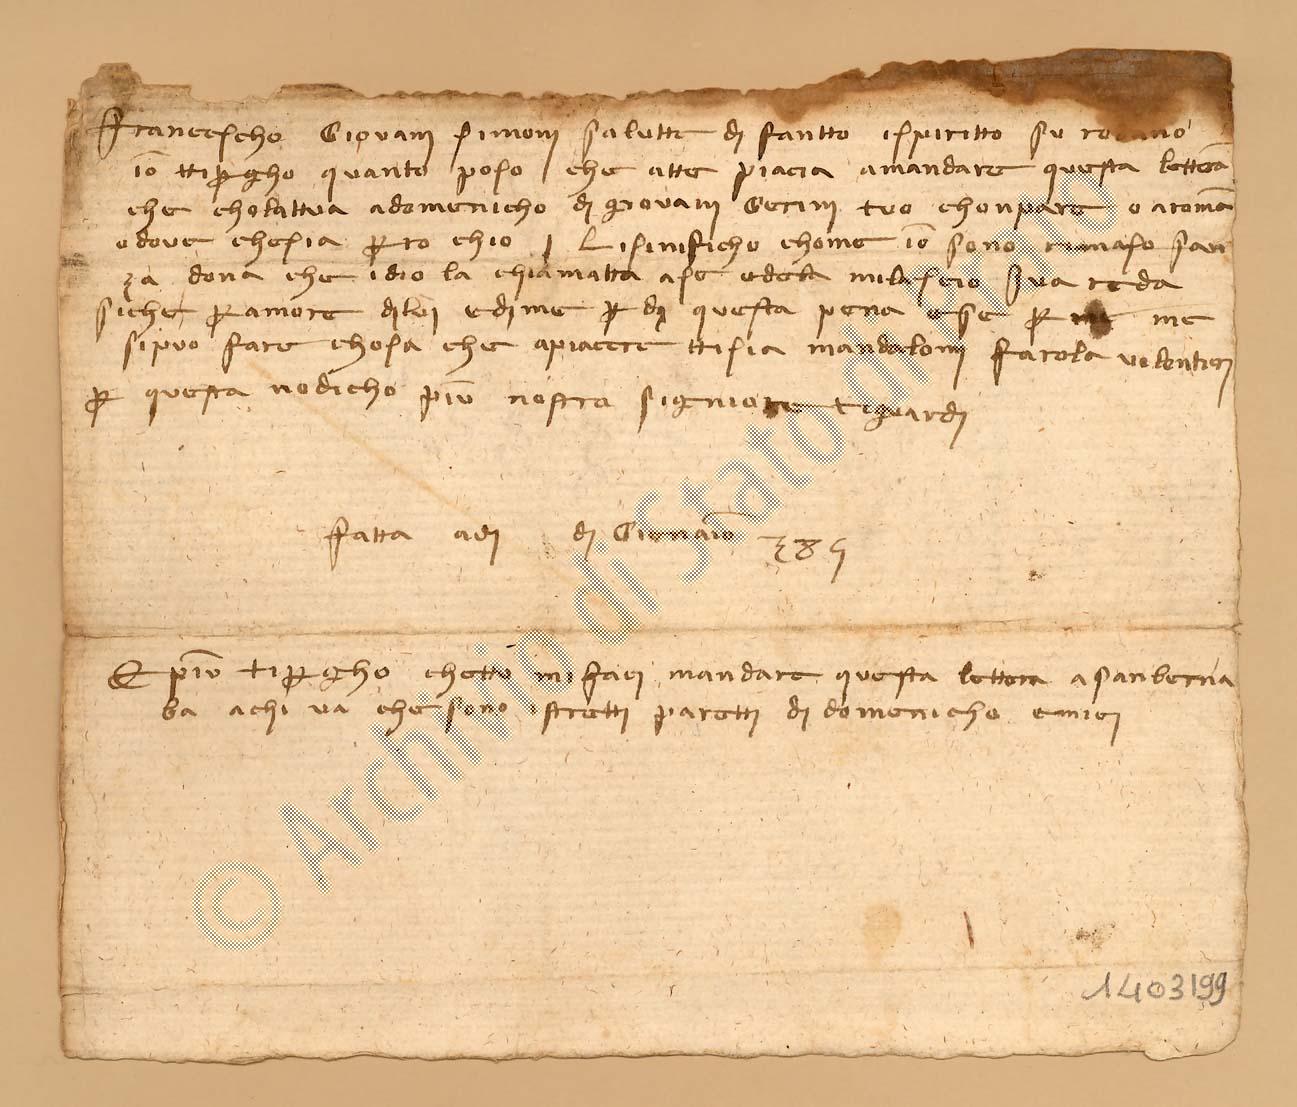 Francescho Giovani simoni salutte di santto ispiritto su rodano
io ttipregho quanto poso che atte piacia a mandare questa lettera
che cholattua a domenicho di giovani Gerini tuo chonpare o a roma
o dove che sia però ch'io li sinificho chome io sono rimaso san
za dona che idio la chiamatta a se e della mi lascio 
siche per amore di lui e di me questa pena e se per me
si puo fare chosa che a piacere tti sia mandalomi farola volentieri
per questa no dicho piu nostro signiore te guardi
fatta adi di Gienaio 385
E piu ti pregho che tto mi faci mandare questa lettera a san berna
ba a chi va che sono istretti paretti di domenicho e miei
1403199
© Archivio di Stato di Prato